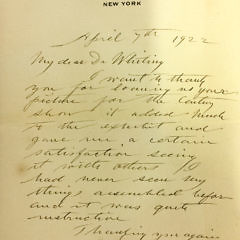 NEW YORK
April 7th 1922
My dear Dr Whiting
I want to thank
you for loaning us your
picture for the Century
show it added much
to the exhibit and
gave me a certain
satisfaction seeing
it with others I
had never seen my
things assembled before
and it was quite
instructive
Thanking you again